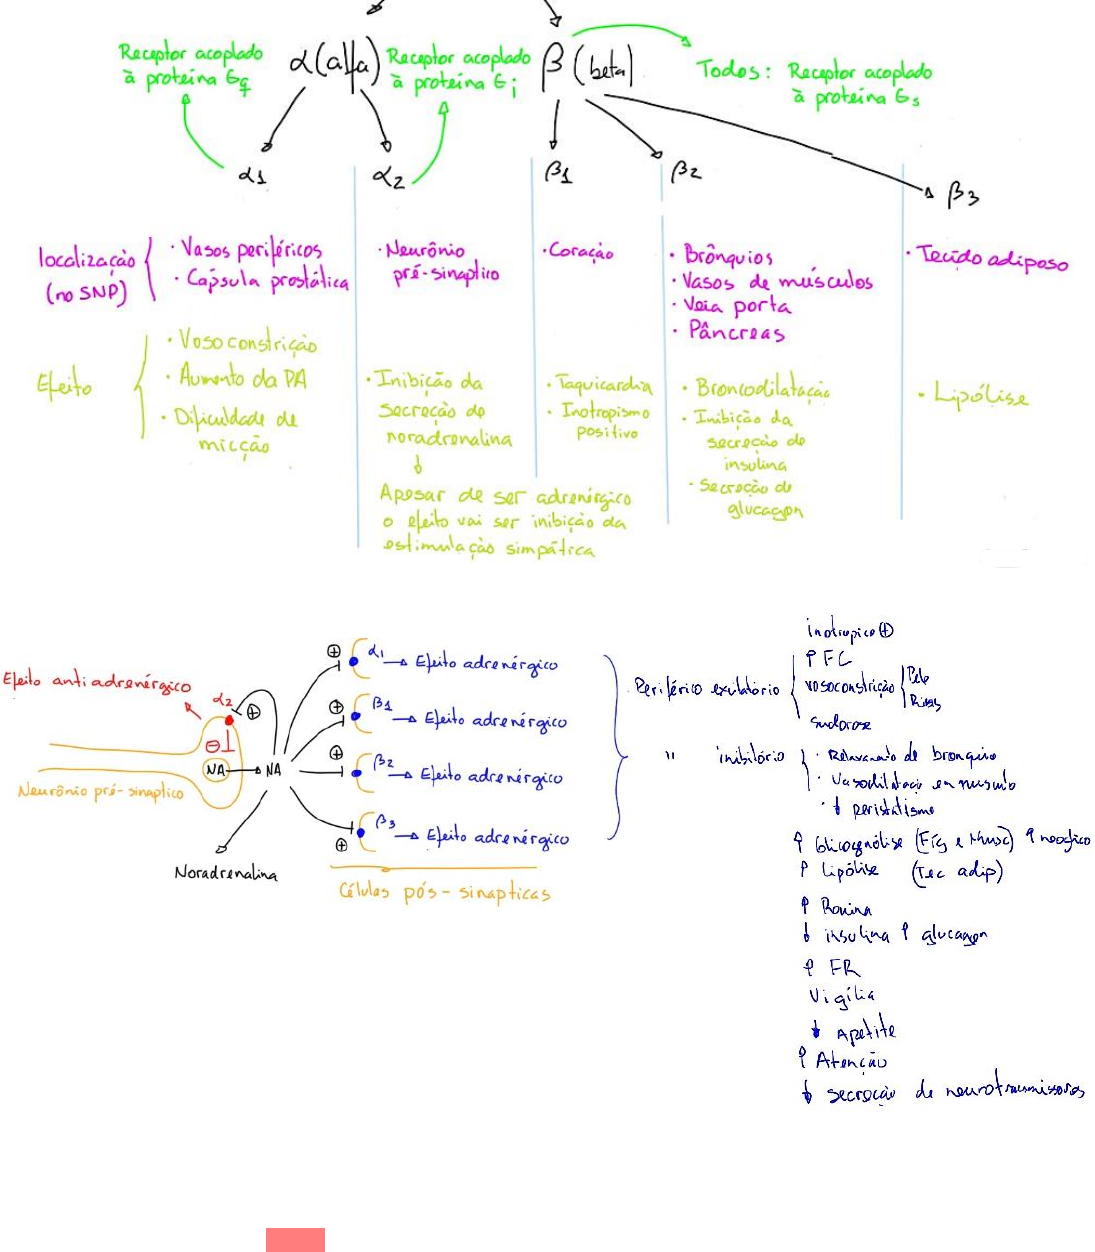 α(alfa)
Receptor acoplado
à proteína Gq
Receptor acoplado
à proteína Gi
β (beta)
Todos: Receptor acoplado
à proteína Gs
α1
α2
β1
β2
β3
localização
(no SNP)
· Vasos periféricos
· Cápsula prostática
· Neurônio
pré-sinaptico
· Coração
· Brônquios
· Vasos de músculos
· Veia porta
· Pâncreas
· Tecido adiposo
Efeito
· Vasoconstrição
· Aumento da PA
· Dificuldade de
micção
· Inibição da
secreção de
noradrenalina
↓
Apesar de ser adrenérgico
o efeito vai ser inibição da
estimulação simpática
· Taquicardia
· Inotropismo
positivo
· Broncodilatação
· Inibição da
secreção de
insulina
· Secreção de
glucagon
· Lipólise
Efeito antiadrenérgico
α2
⊕
⊖
NA → NA
Neurônio pré-sinaptico
Noradrenalina
⊕ α1 → Efeito adrenérgico
⊕ β1 → Efeito adrenérgico
⊕ β2 → Efeito adrenérgico
⊕ β3 → Efeito adrenérgico
Células pós-sinapticas
Periférico exitatório
inotropico ⊕
↑ FC
vasoconstrição
Pele
Rins
sudorese
" inibitório
· Relaxamento de bronquio
· Vasodilatação em musculo
· ↓ peristaltismo
↑ Glicogenólise (Fíg e Musc) ↑ neoglico
↑ Lipólise (Tec adip)
↑ Renina
↓ insulina ↑ glucagon
↑ FR
Vigília
↓ Apetite
↑ Atenção
↓ secreção de neurotransmissores